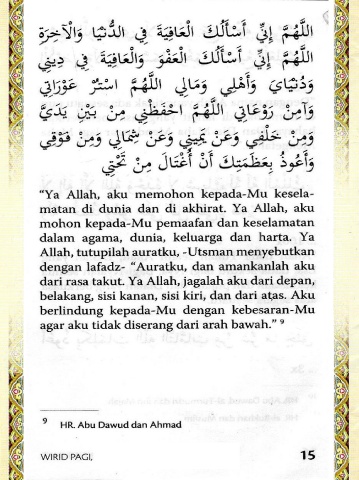 اللَّهُمَّ إِنِّي أَسْأَلُكَ الْعَافِيَةَ فِي الدُّنْيَا وَالْآخِرَةِ
اللَّهُمَّ إِنِّي أَسْأَلُكَ الْعَفْوَ وَالْعَافِيَةَ فِي دِينِي
وَدُنْيَايَ وَأَهْلِي وَمَالِي اللَّهُمَّ اسْتُرْ عَوْرَاتِي
وَآمِنْ رَوْعَاتِي اللَّهُمَّ احْفَظْنِي مِنْ بَيْنِ يَدَيَّ
وَمِنْ خَلْفِي وَعَنْ يَمِينِي وَعَنْ شِمَالِي وَمِنْ فَوْقِي
وَأَعُوذُ بِعَظَمَتِكَ أَنْ أُغْتَالَ مِنْ تَحْتِي
“Ya Allah, aku memohon kepada-Mu kesela-
matan di dunia dan di akhirat. Ya Allah, aku
mohon kepada-Mu pemaafan dan keselamatan
dalam agama, dunia, keluarga dan harta. Ya
Allah, tutupilah auratku, -Utsman menyebutkan
dengan lafadz- “Auratku, dan amankanlah aku
dari rasa takut. Ya Allah, jagalah aku dari depan,
belakang, sisi kanan, sisi kiri, dan dari atas. Aku
berlindung kepada-Mu dengan kebesaran-Mu
agar aku tidak diserang dari arah bawah.” 9
9 HR. Abu Dawud dan Ahmad
WIRID PAGI, 15